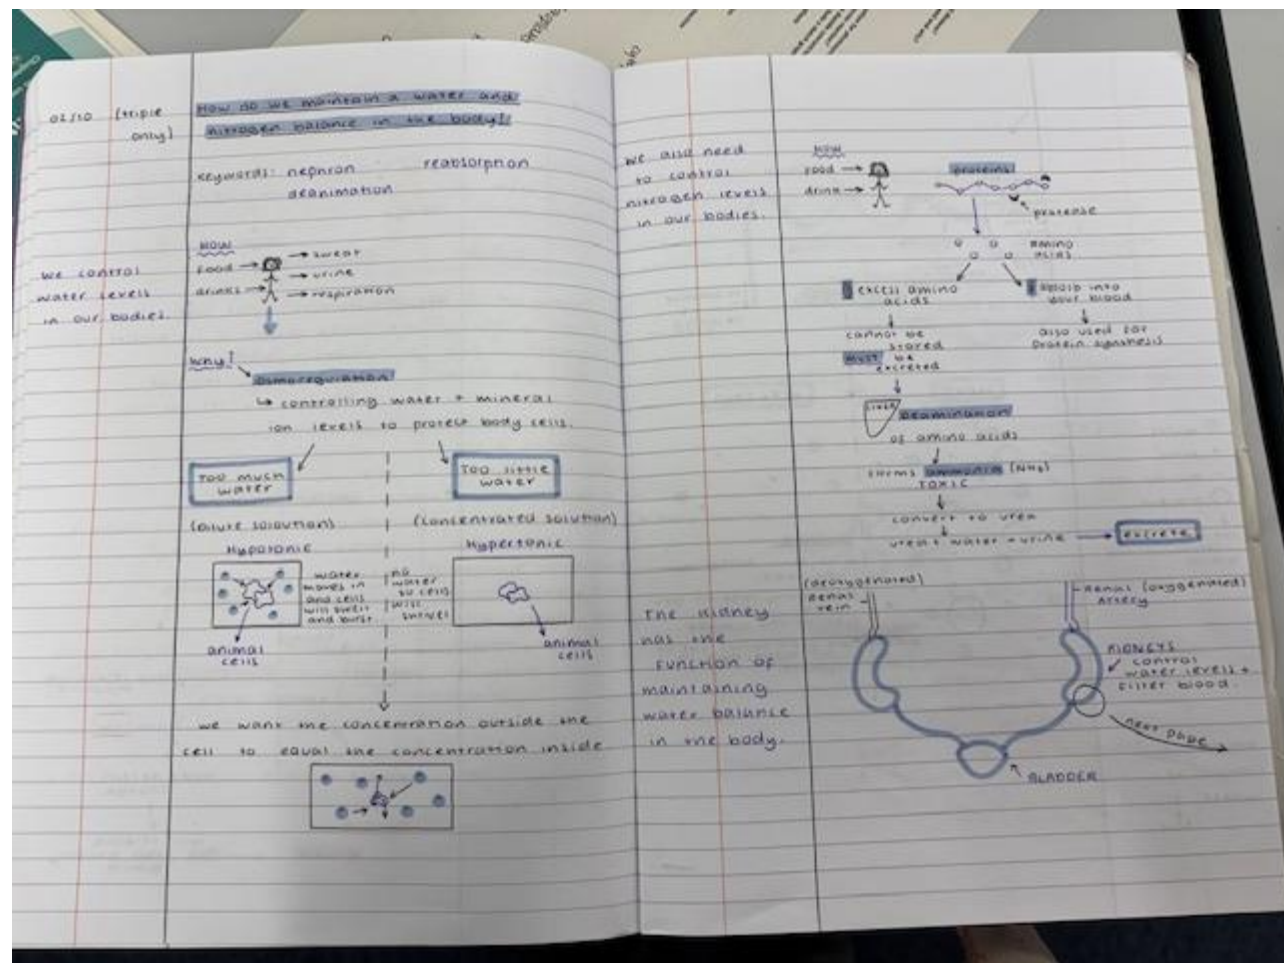 02/10 (triple
only)
How do we maintain a water and
nitrogen balance in the body?
keywords: nephron reabsorption
deanimation
we control
water levels
in our bodies.
HOW
food
drinks
sweat
urine
respiration
Why?
osmoregulation
controlling water + mineral
ion levels to protect body cells.
TOO much
water
TOO little
water
(dilute solution)
(concentrated solution)
Hypotonic
Hypertonic
water
moves in
and cells
will swell
and burst
no
water
so cells
will
shrivel
animal
cells
animal
cells
we want the concentration outside the
cell to equal the concentration inside
we also need
to control
nitrogen levels
in our bodies.
HOW
food
drink
proteins
protease
amino
acids
excess amino
acids
absorb into
your blood
cannot be
stored
must be
excreted
also used for
protein synthesis
liver
Deamination
of amino acids
forms ammonia (NH3)
TOXIC
convert to urea
urea + water = urine
excrete
The kidney
has the
function of
maintaining
water balance
in the body.
(deoxygenated)
Renal
vein
Renal (oxygenated)
Artery
KIDNEYS
control
water levels +
filter blood.
next page
BLADDER